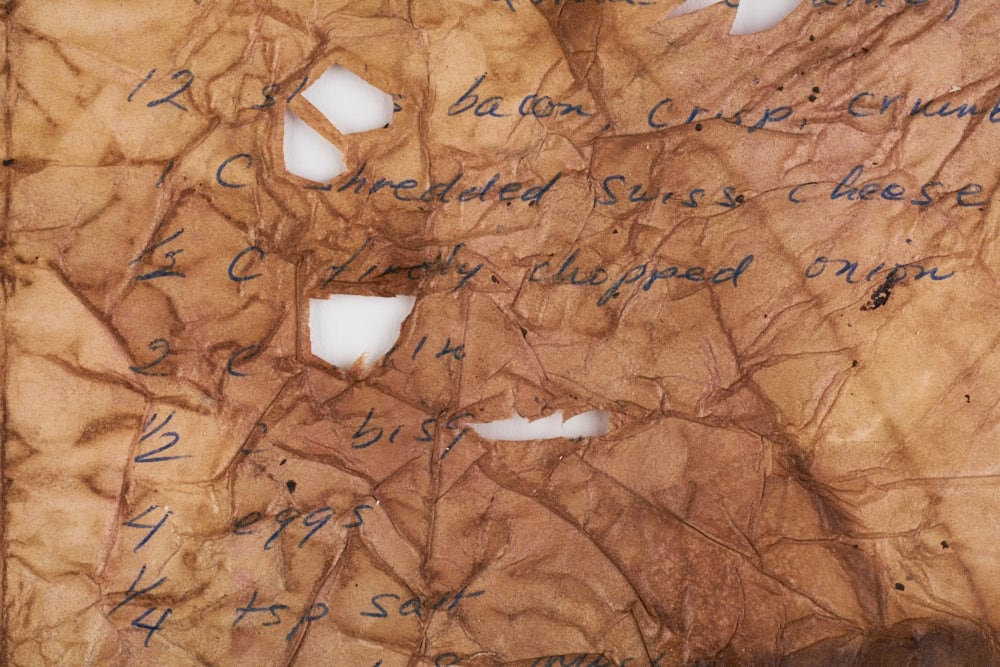 12 bacon, crisp, crumb
1 C shredded swiss cheese
1/3 C finely chopped onion
2 c
1/2 c bisq
4 eggs
1/4 tsp salt